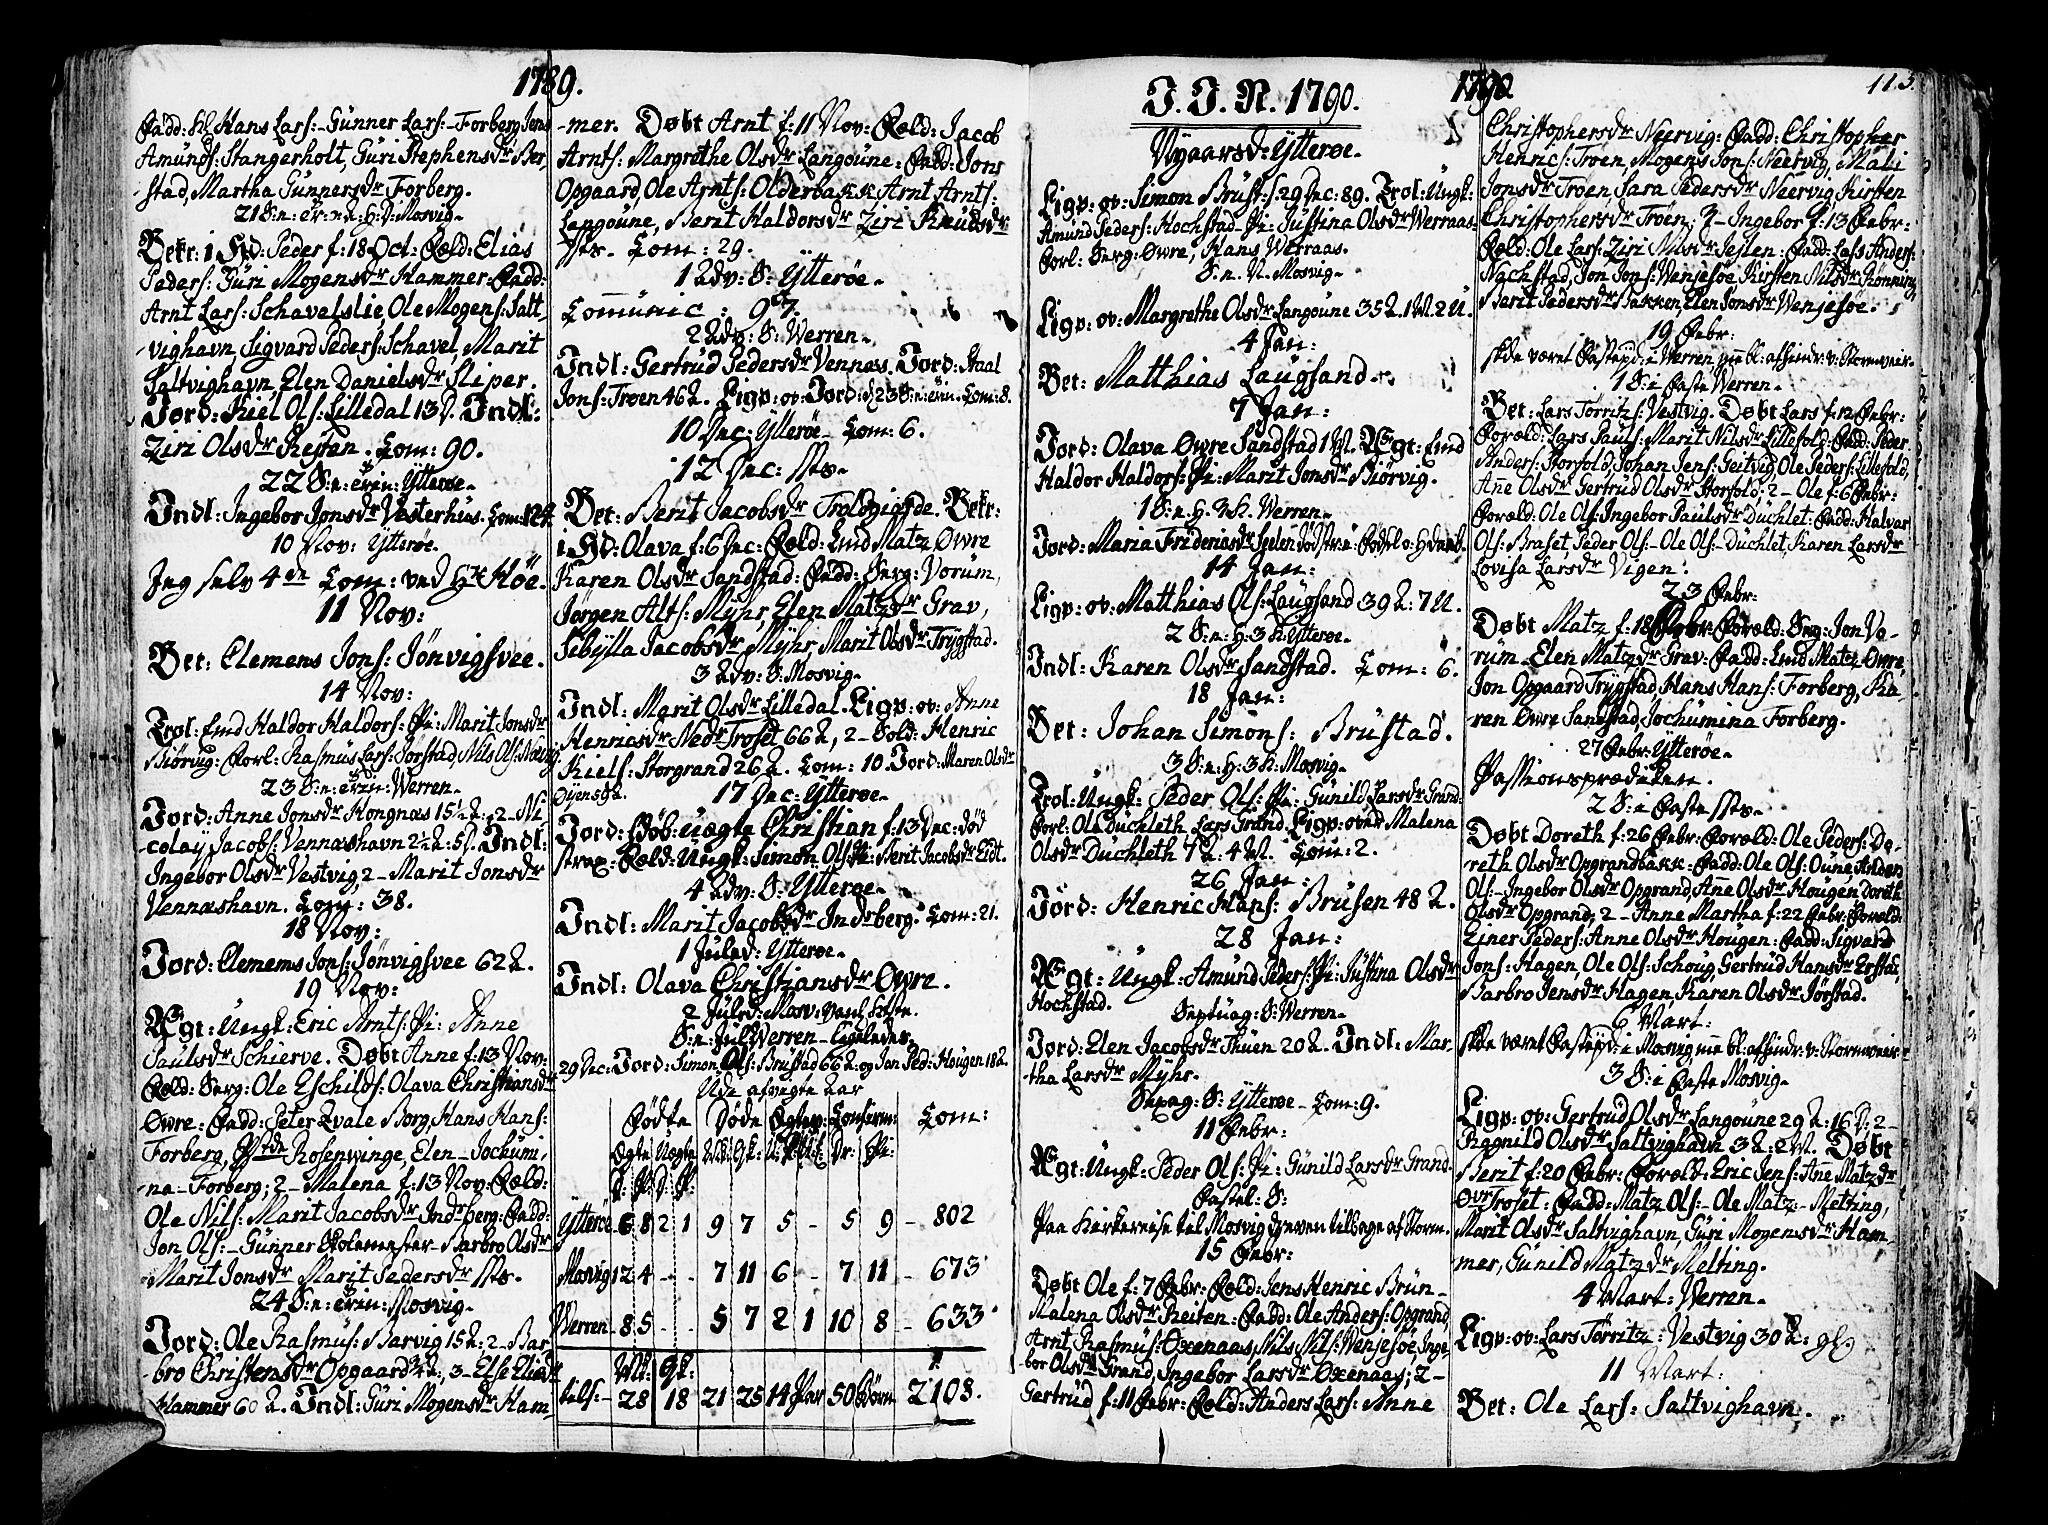 1789.
Fadd: Hl Hans Lars:- Gunner Lars:- Forberg, Jens
Amunds: Stangerholt, Guri Stephensdr Ber-
-stad, Martha Gunnersdr Forberg.
21 S: n: Trin: d: H: D: Mosvig-
Bekr: i Hd: Peder f: 18 Oct: Fæld: Elias
Peders: Guri Mogensdr Hammer Fadd:
Arnt Lars: Schavelslie, Ole Mogens: Salt,
-vighavn, Sigvard Peders: Schavel, Marit
Saltvighavn, Elen Danielsdr Sliper.
Jord: Kiel Ols: Lilledal 13 D. Indl:
Ziri Olsdr Resten. Com: 90.
22 S: n: Trin: Ytterøe-
Indl: Ingebor Jonsdr Vesterhus. Com: 124.
10 Nov: Ytterøe.
Jeg selv 4de Com: ved Hr Höe.
11 Nov:
Bet: Clemens Jons: Jönvigsvee.
14 Nov:
Trol: Emd Haldor Haldors: Pi: Marit Jonsdr
Biörvig: Forl: Rasmus Lars: Jörstad, Nils Ols:
23 S: n: Trin: Werren-
Jord: Anne Jonsdr Kongnæs 15½ 2: 2- Ni-
colay Jacobs: Vennæshavn 2½ 2: 5 D. Indl:
Ingebor Olsdr Vestvig, 2- Marit Jonsdr
Vennæshavn. Com: 38.
18 Nov:
Jord: Clemems Jons: Jönvigsvee 62 2.
19 Nov:
Ægt: Ungk: Eric Arnts: Pi: Anne
Paulsdr Schierve. Døbt Anne f: 13 Nov:
Fæld: Serg: Ole Eschilds: Olava Christiansdr
Øwre: Fadd: Peter Zvale Borg, Hans Hans:
Forberg, Rosenwinge, Elen- Jochumi,
-na- Forberg; 2- Malena f: 13 Nov: Fæld:
Ole Nils: Marit Jacobsdr Indrberg: Fadd:
Jon Ols:- Gunner Skolemester- Barbro Olsdr
Marit Jonsdr Marit Pedersdr sts.
24 S: n: Trin: Mosvig-
Jord: Ole Rasmus: Barvig 15 2: 2- Bar-
bro Christensdr Opgaard, 3- Else Eliædr
Hammer 60 2. Indl: Guri Mogensdr Ham-
-mer. Døbt Arnt f: 11 Nov: Fæld: Jacob
Arnts: Margrethe Olsdr Langoune: Fadd: Jons
Opgaard, Ole Arnts: Olderbakk Arnt Arnts:
Langoune, Berit Haldorsdr Ziri Knudsdr
sts. Com: 29.
1 Adv: S: Ytterøe-
Communic: 97.
2 Adv: S: Werren-
Indl: Gertrud Pedersdr Vennæs. Jord: Staal
Jons: Trøen 46 2. Ligp: ov: Jord: d 23 S: n: Trin. Com: 8.
10 Dec: Ytterøe- Com: 6.
12 Dec: sts-
Bet: Berit Jacobsdr Troldgierde. Bekr:
i Hd: Olava f: 6 Dec: Fæld: Emd Matz Øwre
Karen Olsdr Sandstad: Fadd: Serg: Vorum,
Jørgen Alts: Myhr, Elen Matzdr Grav,
Sebylla Jacobsdr Myhr, Marit Olsdr Trygstad.
3 Adv: S: Mosvig-
Indl: Marit Olsdr Lilledal. Ligp: ov: Anne
Henricsdr Nedr Troset 66 2, 2- Sold: Henric
Kiels: Storgrand 26 2. Com: 10 Jord: Maren Olsdr
Øyen 59 2. 17 Dec: Ytterøe-
Jord: Døb: uægte Christian f: 13 Dec: død
strax: Fæld: Ungk: Simon Ols: Pi: Berit Jacobsdr Eidt.
4 Adv: S: Ytterøe-
Indl: Marit Jacobsdr Indrberg. Com: 21.
1 Juled: Ytterøe-
Indl: Olava Christiansdr Øvre.
2 Juled: Mosv:
S: n: Jul Werren- Ligeledes.
29 Dec: Jord: Simon Ols: Brustad 66 2: og Jon Ped: Hougen 18 2.
Ude afvigte Aar
Fødte Døde Ægtev: Conferm: Com:
Ægte Uægte Mk: Qk: Dr: Pi:
Ytterøe- 6 8 2 1 9 7 5 - 5 9 - 802
Mosvig 12 4 - - 7 11 6 - 7 11 - 673
Werren- 8 5 - - 5 7 2 1 10 8 - 633
Mk: Qk:
tils:- 28 18 21 25 14 Par 50 Børn 2108.
J. J. N. 1790.
Nyaarsd: Ytterøe-
Ligp: ov: Simon Brust: d: 29 Dec: 89. Trol: Ungk:
Amund Peders: Hochstad- Pi: Justina Olsdr Werraas-
Forl: Serg: Øwre, Hans Werraas.
S: n: N: Mosvig-
Ligp: ov: Margrethe Olsdr Langoune 35 2. 1 M. 2 U.
4 Jan:
Bet: Matthias Laugsand-
7 Jan:
Jord: Olava Øwre Sandstad 1 M. Ægt: Emd
Haldor Haldors: Pi: Marit Jonsdr Biörvig.
1 S: n: H: 3 K: Werren-
Jord: Maria Fridericsdr Seelen dödstr: i Födsl: o: Hdaab.
14 Jan:
Ligp: ov: Matthias Ols: Laugsand 39 2: 7 U.
2 S: n: H: 3 K: Ytterøe-
Indl: Karen Olsdr Sandstad. Com: 6.
18 Jan:
Bet: Johan Simons: Brustad.
3 S: n: H: 3 K: Mosvig-
Trol: Ungk: Peder Ols: Pi: Gunild Larsdr Grand:
Forl: Ole Duchleth, Lars Grand. Ligp: over Malena
Olsdr Duchleth 7 2: 4 M. Com: 2.
26 Jan:
Jord: Henric Hans: Brusen 48 2.
28 Jan:
Ægt: Ungk: Amund Peders: Pi: Justina Olsdr
Hochstad.
Septuag: S: Werren-
Jord: Elen Jacobsdr Thuen 20 2. Indl: Mar-
tha Larsdr Myhr.
Sexag: S: Ytterøe- Com: 9.
11 Febr:
Ægt: Ungk: Peder Ols: Pi: Gunild Larsdr Grand.
Fastel: S:
Paa Kirkereise til Mosvig dreven tilbage af Storm.
15 Febr:
Døbt Ole f: 7 Febr: Fæld: Jens Henric Brun-
Malena Olsdr Reiten- Fadd: Ole Anders: Opgrand,
Arnt, Rasmus: Oxenaas, Nils Nils: Wenjesöe, Inge-
bor Olsdr Grand, Ingebor Larsdr Oxenaas; 2-
Gertrud f: 11 Febr: Fæld: Anders Lars: Anne
1790
113.
Christophersdr Neervig: Fadd: Christopher
Henrics: Trøen, Mogens Jons: Neervig, Mali
Jonsdr Trøen, Sara Pedersdr Neervig, Kirsten
Christophersdr Trøen; 3- Ingebor f: 13 Febr:
Fæld: Ole Lars: Ziri Nilsdr Seflen- Fadd: Lars Anders:
Nachstad, Jon Jons: Wenjesöe, Kirsten Nilsdr Rönning,
Berit Pedersdr Bakken, Elen Jonsdr Wenjesöe.
19 Febr:
skde været Fastepd: i Werren
1 S: i Faste Werren-
Bet: Lars Torritz: Vestvig. Døbt Lars f: 12 Febr:
Foræld: Lars Pauls: Marit Nilsdr Lillefold- Fadd: Peder
Anders: Storfold, Johan Jens: Geitvig, Ole Peders: Lillefold,
Anne Olsdr Gertrud Olsdr Storfold; 2- Ole f: 6 Febr:
Foræld: Ole Ols: Ingebor Paulsdr Duchlet: Fadd: Halvar
Ols: Braset, Peder Ols:- Ole Ols:- Duchlet, Karen Larsdr
Lovisa Larsdr Vigen.
23 Febr:
Døbt Matz f: 18 Febr: Foræld: Serg: Jon Vo-
rum- Elen Matzdr Grav: Fadd: Emd Matz Øwre,
Jon Opgaard Trygstad, Hans Hans: Forberg, Ka-
ren Øwre Sandstad, Jochumina Forberg.
27 Febr: Ytterøe-
Passionsprædiken.
2 S: i Faste sts-
Døbt Doreth f: 26 Febr: Foræld: Ole Peders: Do-
reth Olsdr Opgrandbakk- Fadd: Ole Ols: Oune, Anders
Ols- Ingebor Olsdr Opgrand, Ane Olsdr Hougen, Doreth
Olsdr Opgrand; 2- Anne Martha f: 22 Febr: Foræld:
Einer Peders: Anne Olsdr Hougen: Fadd: Sigvard
Jons: Hagen, Ole Ols: Schoug, Gertrud Hansdr Erstad,
Barbro Jensdr Hagen, Karen Olsdr Jörstad.
6 Mart:
skde været Fastepd: i Mosvig
3 S: i Faste Mosvig-
Ligp: ov: Gertrud Olsdr Langoune 29 2: 16 D: 2-
Ragnild Olsdr Saltvighavn 3 2: 2 M. Døbt
Berit f: 20 Febr: Foræld: Eric Jens: Anne Matzdr
Øvr Troset- Fadd: Matz Ols:- Ole Matz:- Melting,
Marit Olsdr Saltvighavn, Guri Mogensdr Ham-
mer, Gunild Matzdr Melting.
4 Mart: Werren-
Ligp: ov: Lars Torritz: Vestvig 30 2:
11 Mart:
Bet: Ole Lars: Saltvighavn.